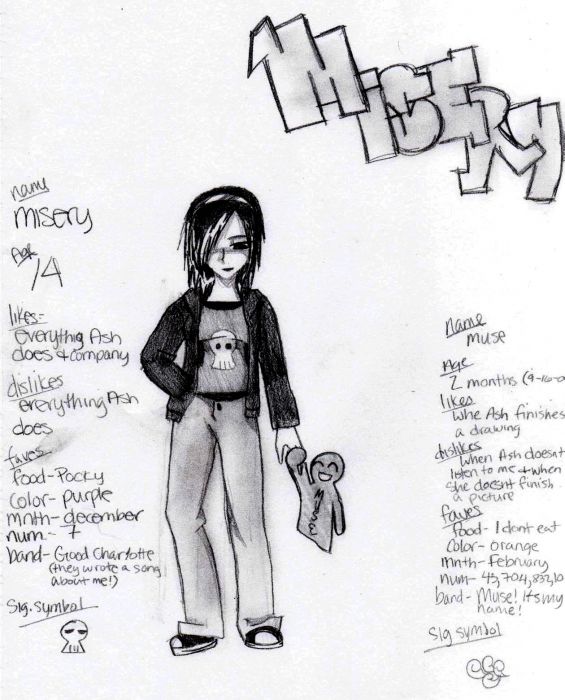 MISERY
name
misery
Age
14
likes-
everythig Ash
does & company
dislikes
everything Ash
does
faves
food-Pocky
color- purple
mnth- december
num.- 7
band- Good Charlotte
(they wrote a song
about me!)
sig. symbol
MUSE
name
muse
Age
2 months (9-16-0
likes
whe Ash finishes
a drawing
dislikes
when Ash doesnt
listen to me & when
she doesnt finish
a picture
faves
food- I dont eat
color- orange
mnth- February
num-
band- Muse! Its my
name!
sig symbol